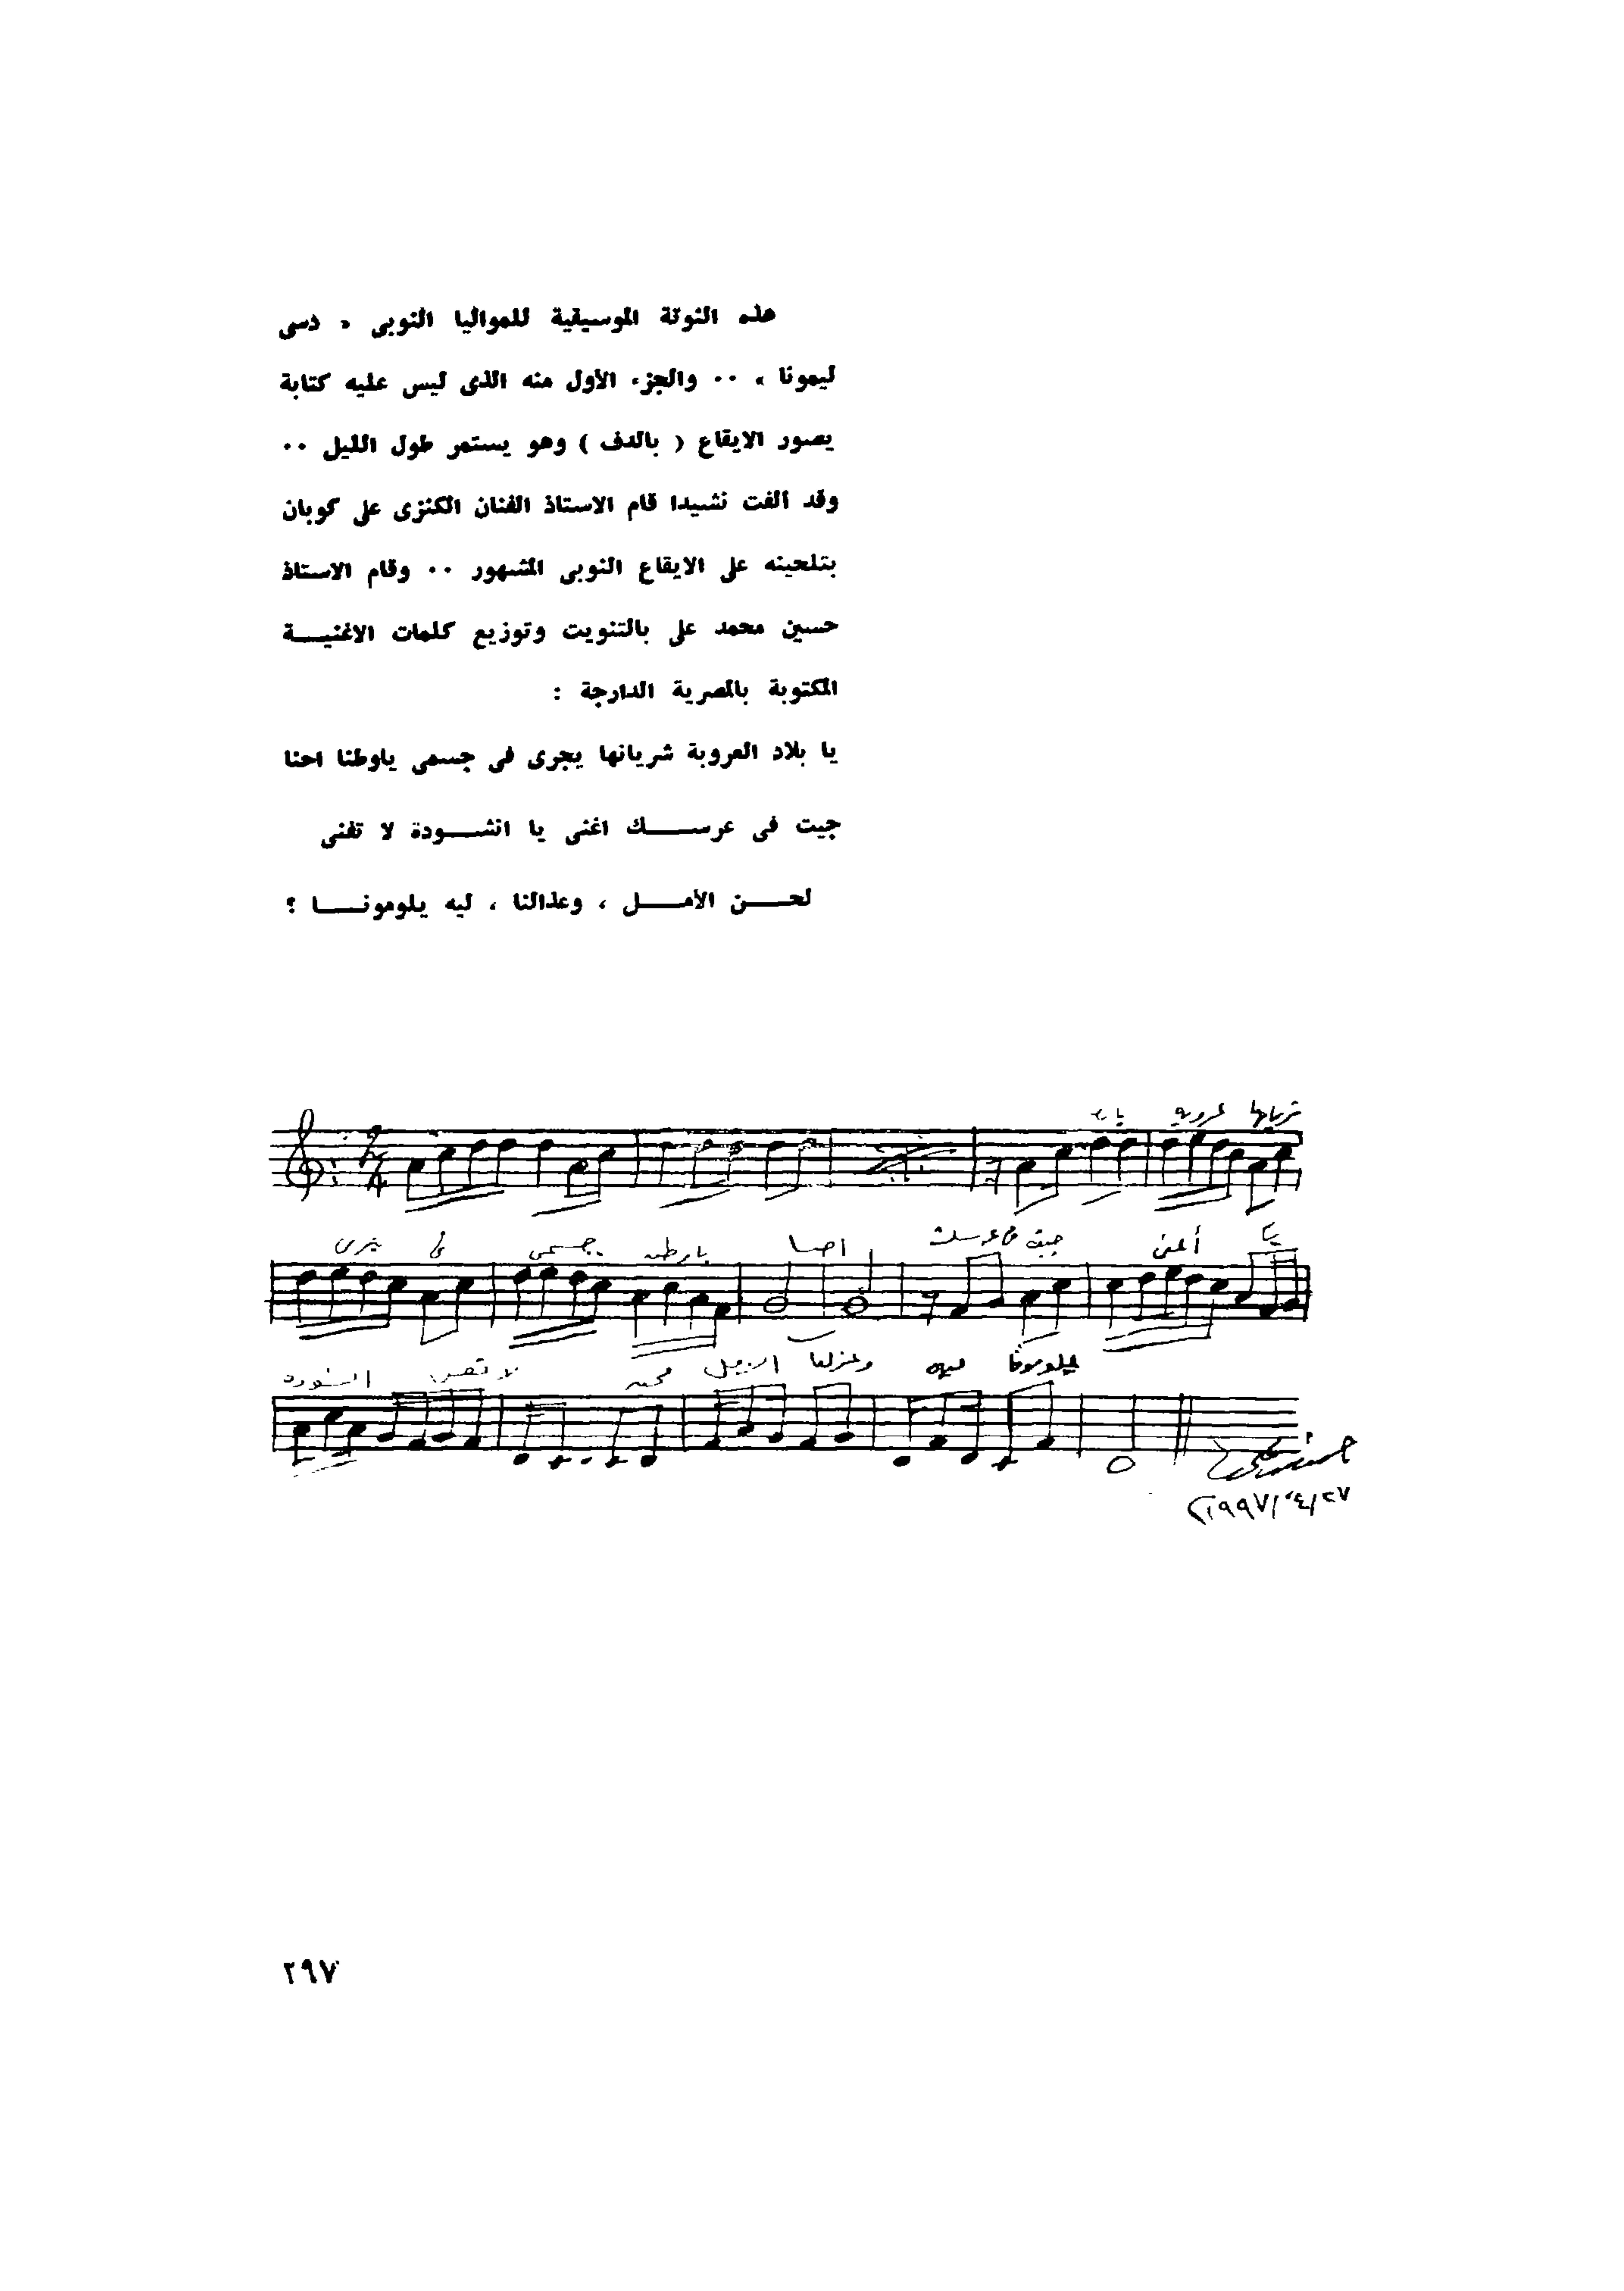 هذه النوتة الموسيقية للمواليا النوبى « دسى
ليمونا » ٠٠ والجزء الأول منه الذى ليس عليه كتابة
يصور الايقاع ( بالدف ) وهو يستمر طول الليل ٠٠
وقد ألفت نشيدا قام الاستاذ الفنان الكنزى على كوبان
بتلحينه على الايقاع النوبى المشهور ٠٠ وقام الاستاذ
حسين محمد على بالتنويت وتوزيع كلمات الاغنيــة
المكتوبة بالمصرية الدارجة :
يا بلاد العروبة شريانها يجرى فى جسمى ياوطنا احنا
جيت فى عرســـك اغنى يا انشـــودة لا تفنى
لحـــن الأمـــل ، وعذالنا ، ليه يلومونـــا ؟
عروبة شريانها
فى
جسمى
احنا
جيت فى عرسك
أغنى
يا
لا تفنى
ليه
يلومونا
٢٩٧